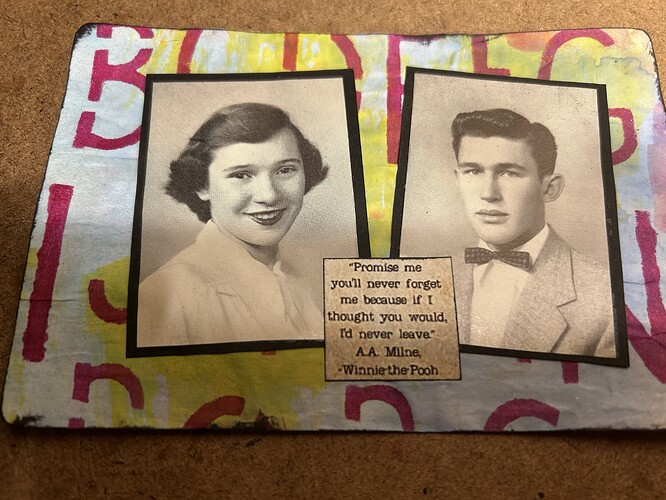 "Promise me
you'll never forget
me because if I
thought you would,
I'd never leave."
A.A. Milne,
-Winnie-the-Pooh